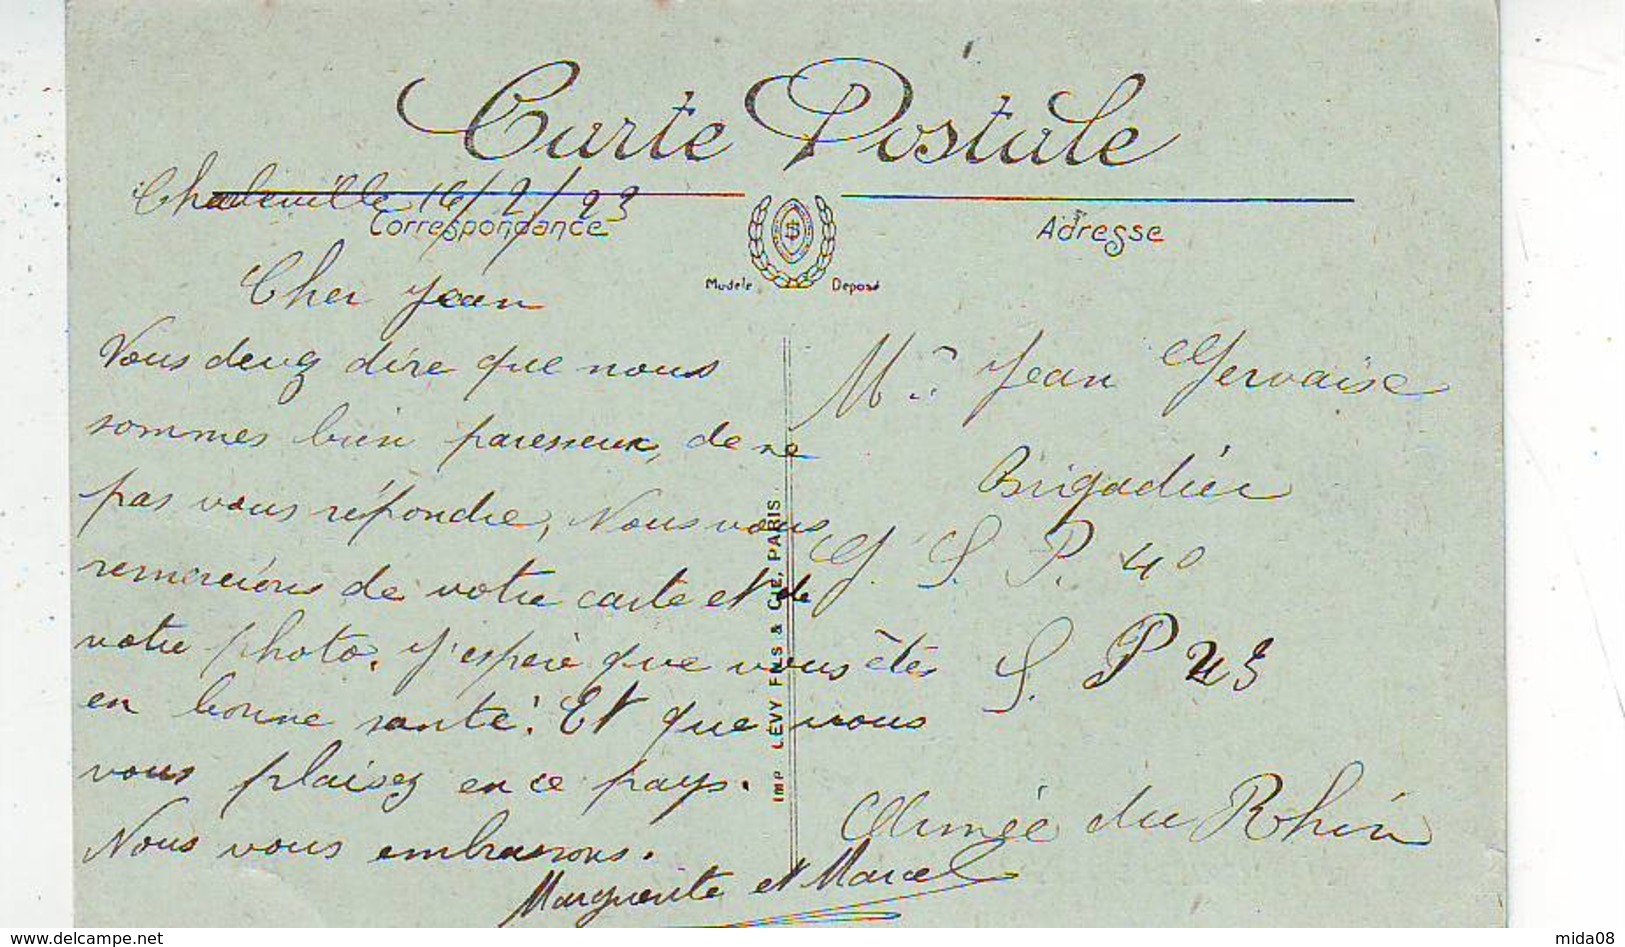 Carte Postale
Charleville 16/2/23
Correspondance
Adresse
Modèle Déposé
Cher Jean
Vous devez dire que nous
sommes bien paresseux, de ne
pas vous répondre, Nous vous
remercions de votre carte et de
votre photo. J'espère que vous êtes
en bonne santé. Et que vous
vous plaisez en ce pays.
Nous vous embrassons.
Marguerite et Marcel
IMP. LÉVY FILS & CIE, PARIS
Mr Jean Gervaise
Brigadier
S. P. 40
S. P 43
Armée du Rhin
www.delcampe.net
mida08